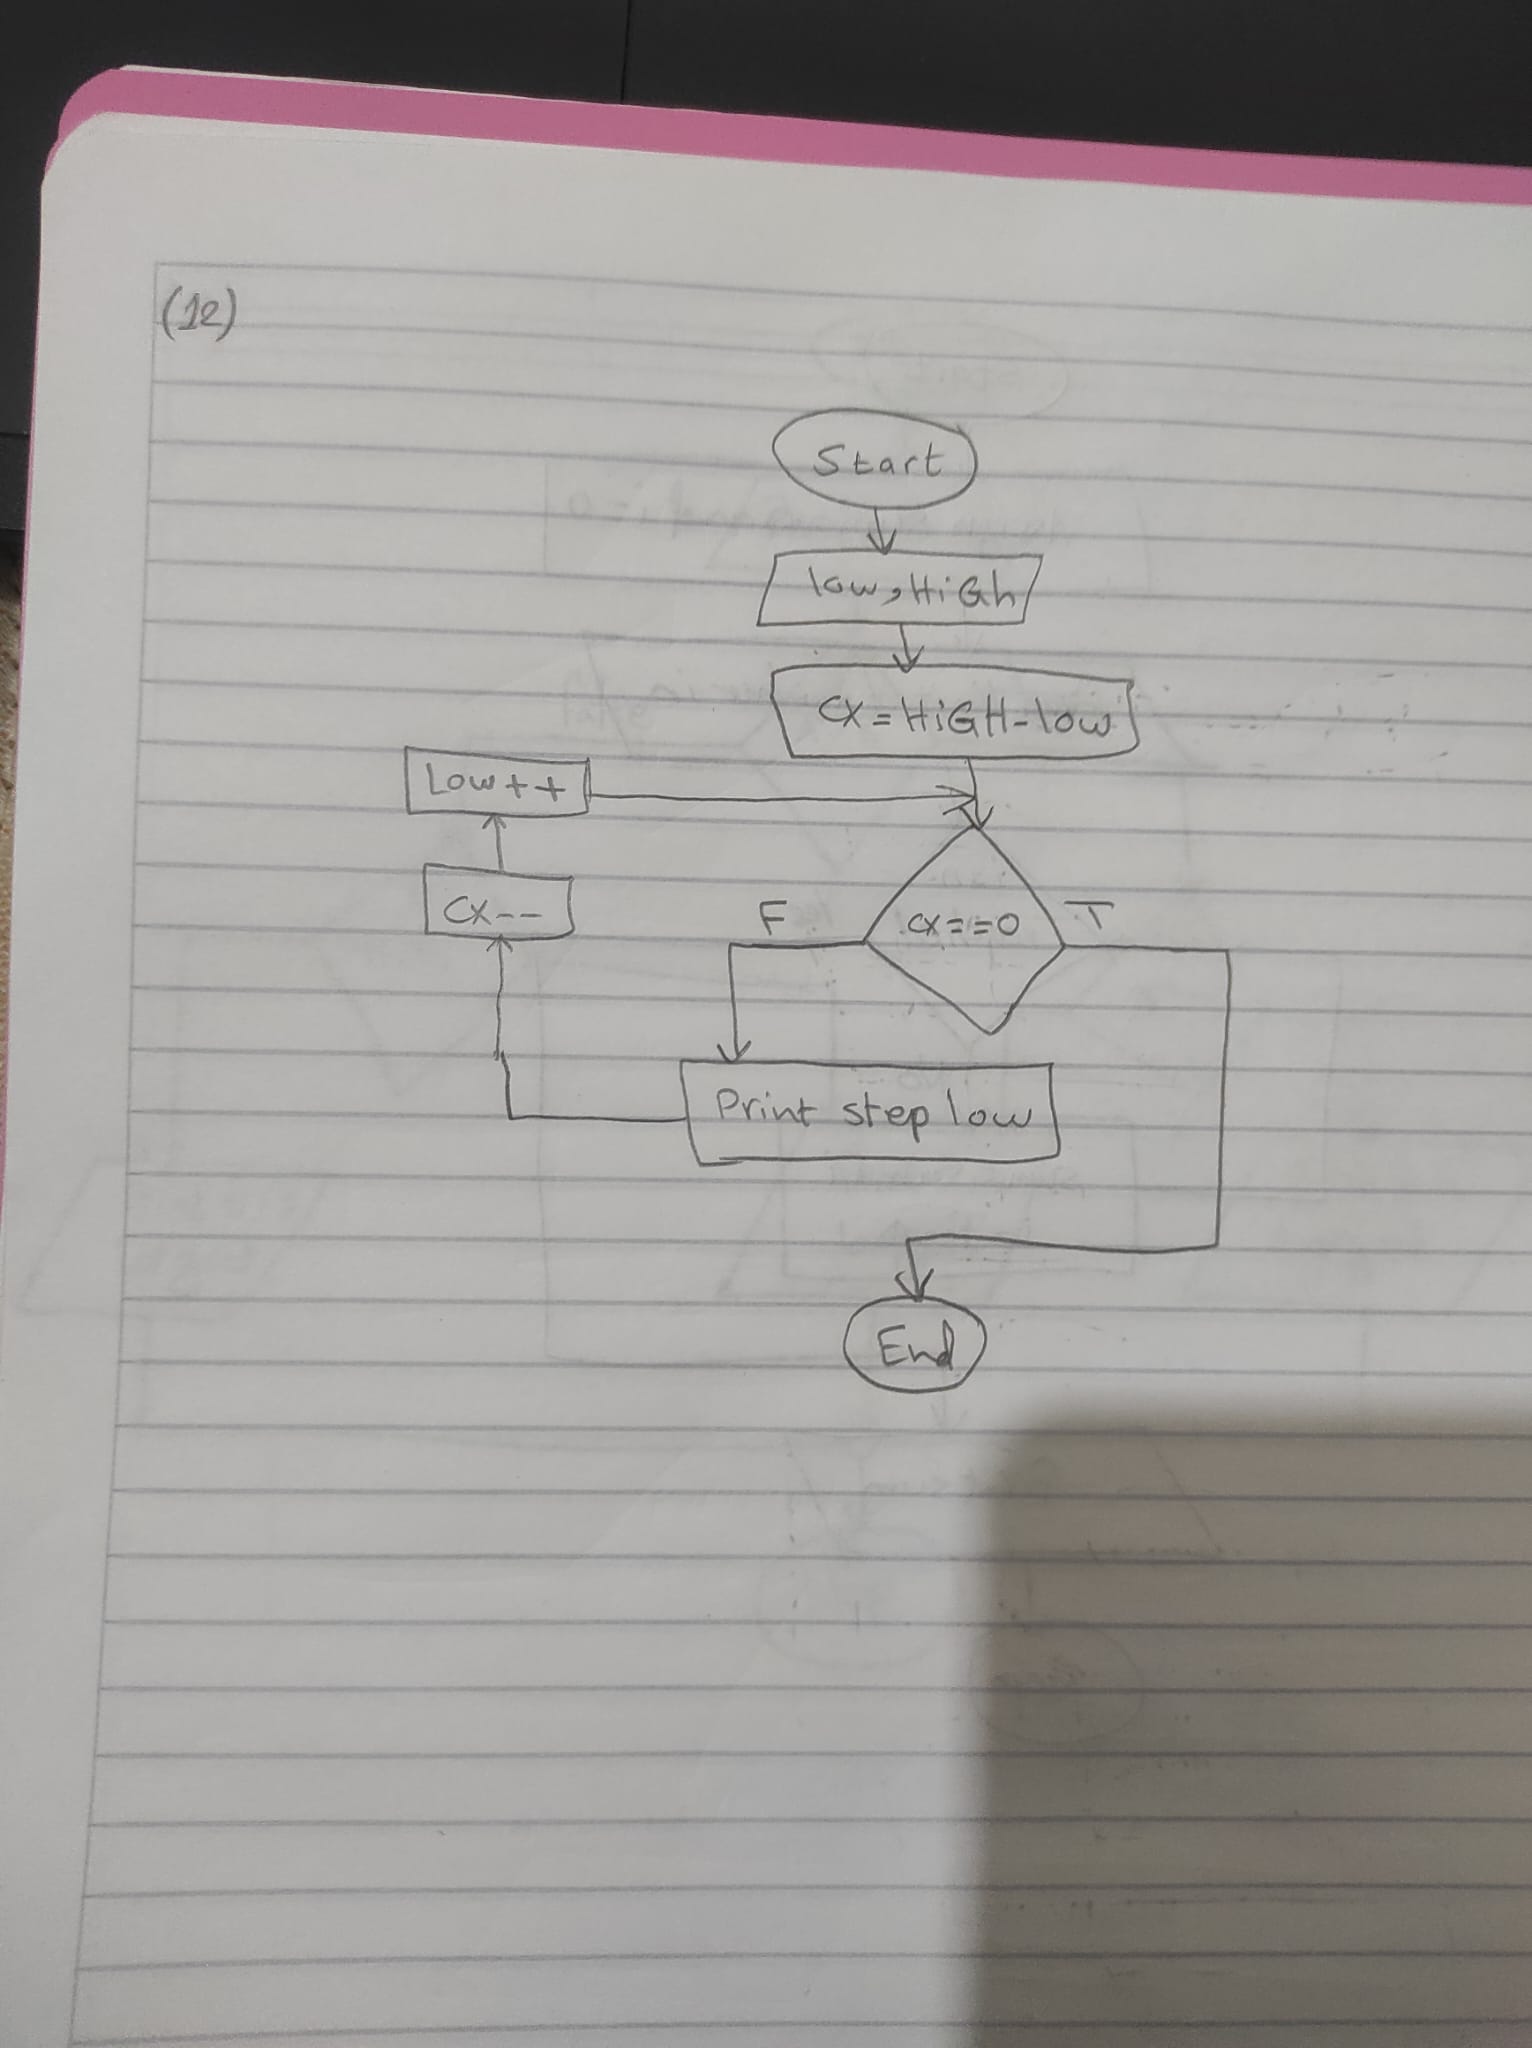 (12)
Start
low, HiGh
CX = HiGH - low
Low++
CX--
F
CX==0
T
Print step low
End